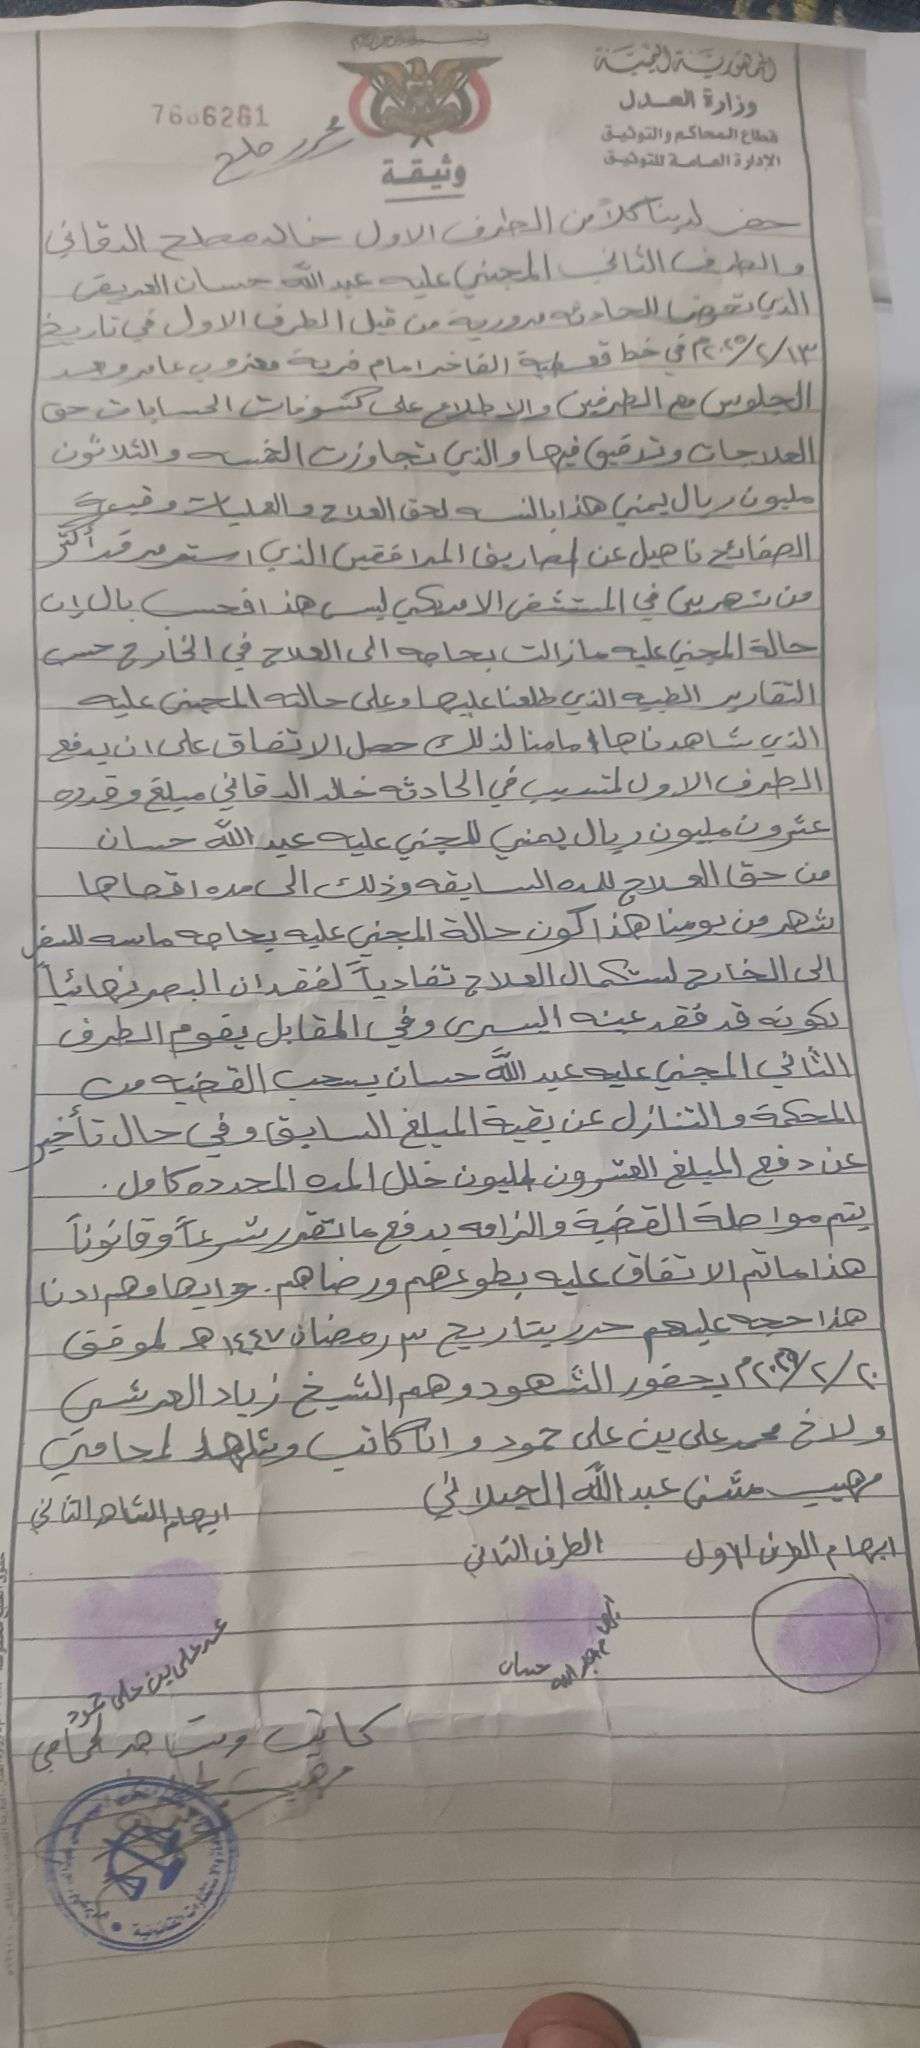 الجمهورية اليمنية
وزارة العدل
قطاع المحاكم والتوثيق
الإدارة العامة للتوثيق
7666261
محرر صلح
وثيقة
حضر لدينا كلاً من الطرف الاول خالد مصلح الدقاني
والطرف الثاني المجني عليه عبدالله حسان العريقي
الذي تعرض للحادثه مرورية من قبل الطرف الاول في تاريخ
في خط قعطبة الفاخر امام قرية عامر وبعد
الجلوس مع الطرفين والاطلاع على كشوفات الحسابات حق
العلاجات وتدقيق فيها والذي تجاوزت الخمسه والثلاثون
مليون ريال يمني هذا بالنسبه لحق العلاج والعمليات وقيمة
الصفائح ناهيل عن المصاريف المرافقين الذي استمر مرقد أكثر
من شهرين في المستشفى الامريكي ليس هذا فحسب بال إن
حالة المجني عليه مازالت بحاجه الى العلاج في الخارج حسب
التقارير الطبيه الذي طلعنا عليها وعلى حالته المجني عليه
الذي شاهدناها امامنا لذلك حصل الاتفاق على ان يدفع
الطرف الاول المتسبب في الحادثه خالد الدقاني مبلغ وقدره
عشرون مليون ريال يمني للمجني عليه عبدالله حسان
من حق العلاج للمده السابقه وذلك الى مده اقصاها
شهر من يومنا هذا كون حالة المجني عليه بحاجه ماسه للسفر
الى الخارج لستكمال العلاج تفادياً لفقدان البصر نهائياً
كونه قد فقد عينه اليسرى وفي المقابل يقوم الطرف
الثاني المجني عليه عبدالله حسان بسحب القضيه من
المحكمة والتنازل عن بقية المبلغ السابق وفي حال تأخير
عن دفع المبلغ العشرون المليون خلال المده المحدده كامل .
يتم مواصلة القضية والزامه بدفع ما تقرر شرعاً وقانوناً
هذا ماتم الاتفاق عليه بطوعهم ورضاهم . وابهامهم ادنا
هذا حجه عليهم حرر بتاريخ ٣ رمضان ١٤٤٧ هـ لموفق
بحضور الشهود وهم الشيخ زياد العريسي
ولاخ محمد علي بن علي حمود وانا كاتب وشاهد لمحامي
مهيب مثنى عبدالله الجيلاني
ابهام الشاهد الثاني
ابهام الطرف الاول
الطرف الثاني
حسان
محمد علي بن علي حمود
كاتب وشاهد المحامي
مهيب